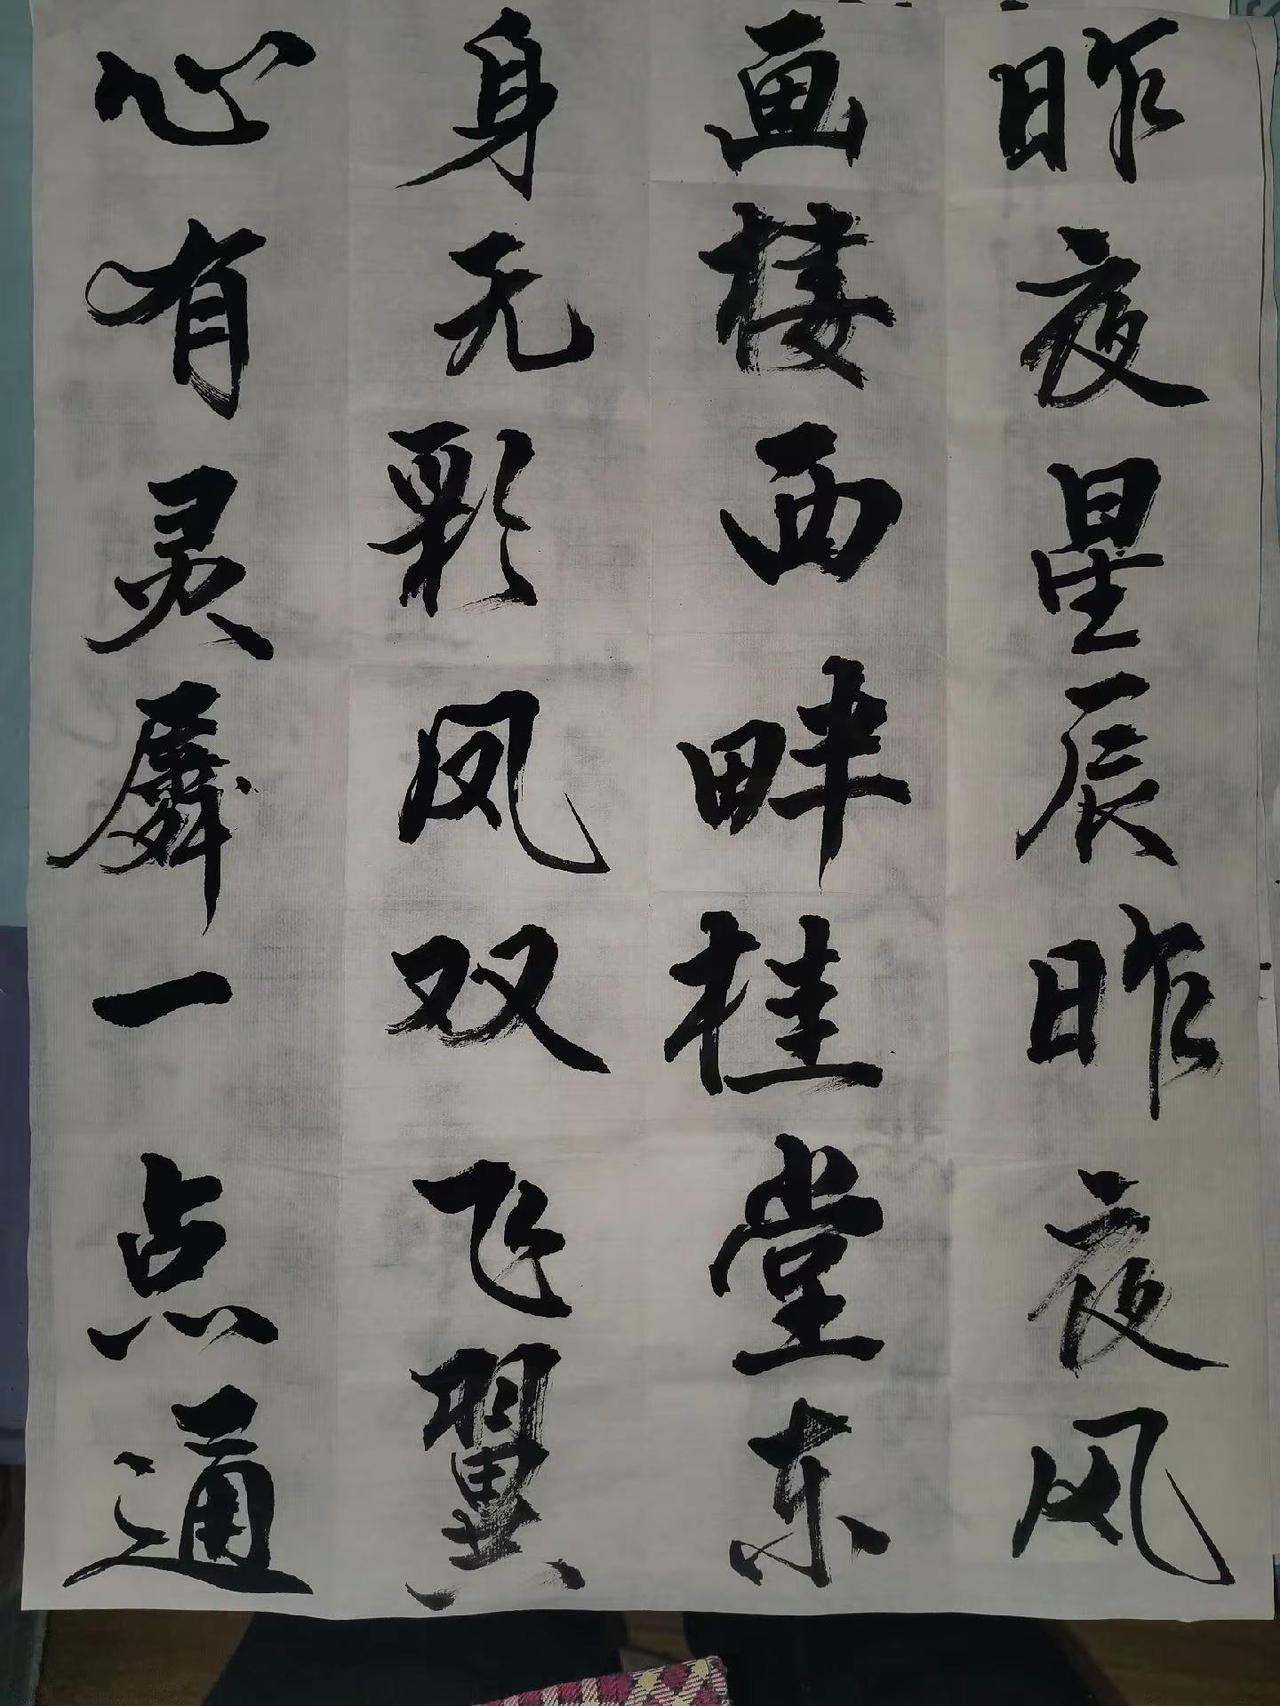 昨夜星辰昨夜风
画楼西畔桂堂东
身无彩凤双飞翼
心有灵犀一点通